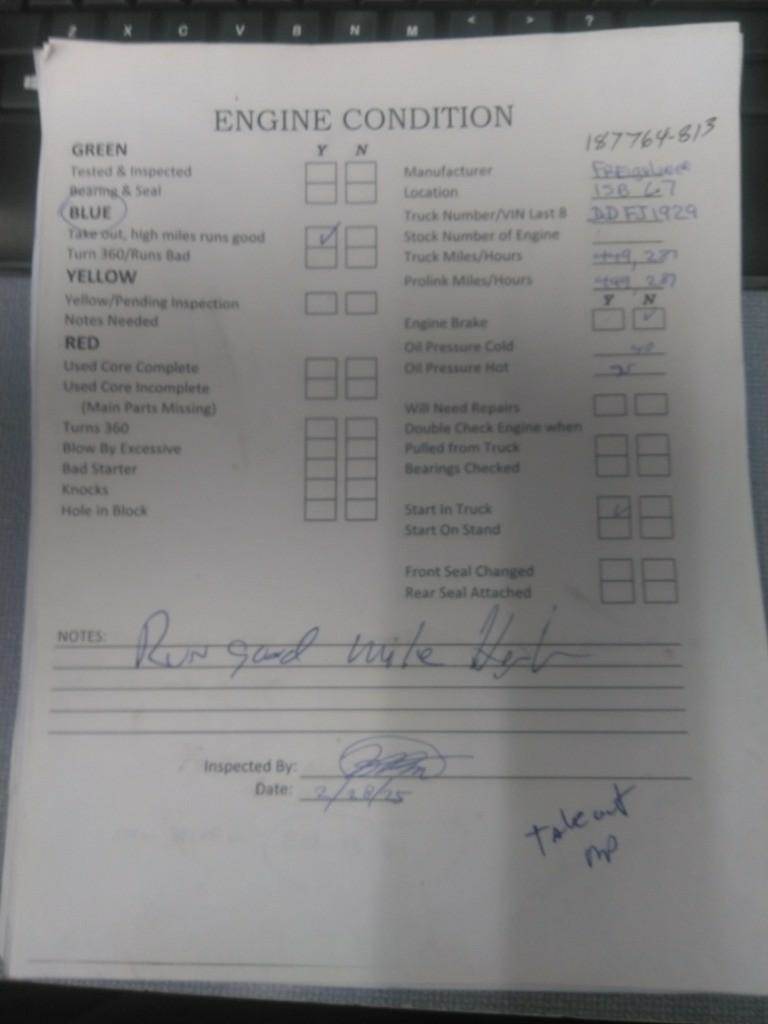 Z X C V B N M < > ?
ENGINE CONDITION
187764-813
GREEN Y N
Tested & Inspected
Bearing & Seal
BLUE
Take out, high miles runs good ✓
Turn 360/Runs Bad
YELLOW
Yellow/Pending Inspection
Notes Needed
RED
Used Core Complete
Used Core Incomplete
(Main Parts Missing)
Turns 360
Blow By Excessive
Bad Starter
Knocks
Hole in Block
Manufacturer
Location ISB 6.7
Truck Number/VIN Last 8
Stock Number of Engine
Truck Miles/Hours 449,287
Prolink Miles/Hours 449,287
Y N
Engine Brake ✓
Oil Pressure Cold 40
Oil Pressure Hot
Will Need Repairs
Double Check Engine when
Pulled from Truck
Bearings Checked
Start In Truck ✓
Start On Stand
Front Seal Changed
Rear Seal Attached
NOTES: Run good mile High
Inspected By:
Date: 2/28/25
Take out